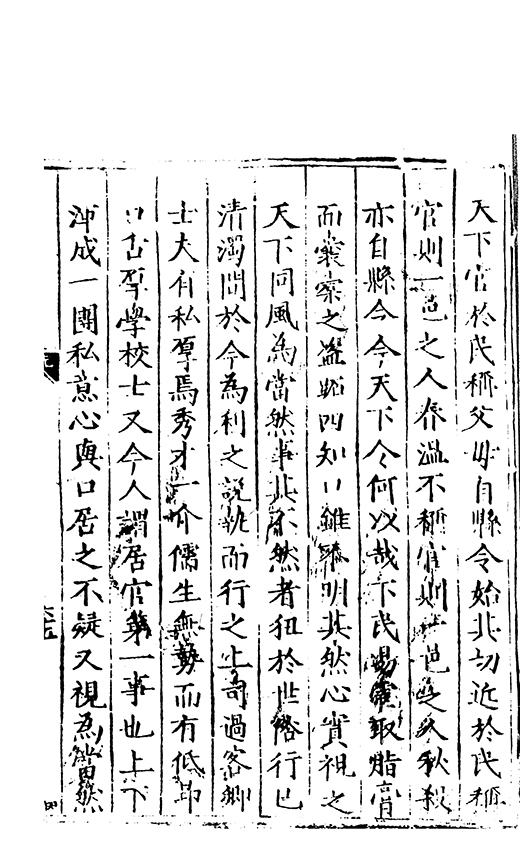 天下官於民稱父母自縣令始其切近於民稱
官則一邑之人春溫不稱官則一邑之人秋殺
亦自縣令今天下令何以哉下民竭取脂膏
而囊橐之盜四知雖明其然心實視之
天下同風為當然事其不然者狃於世俗行已
清濁問於今為利之說執而行之上奇過客鄉
士夫有私厚焉秀才一介儒生無勢而有低昂
口舌學校士又今人謂居官第一事也上下
渾成一團私意心與口居之不疑又視為當然